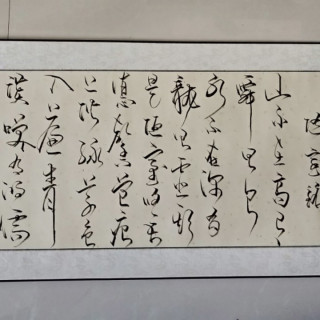 陋室銘
山不在高有
仙則名
水不在深有
龍則靈斯
是陋室惟吾
德馨苔痕
上階綠草色
入簾青
談笑有鴻儒